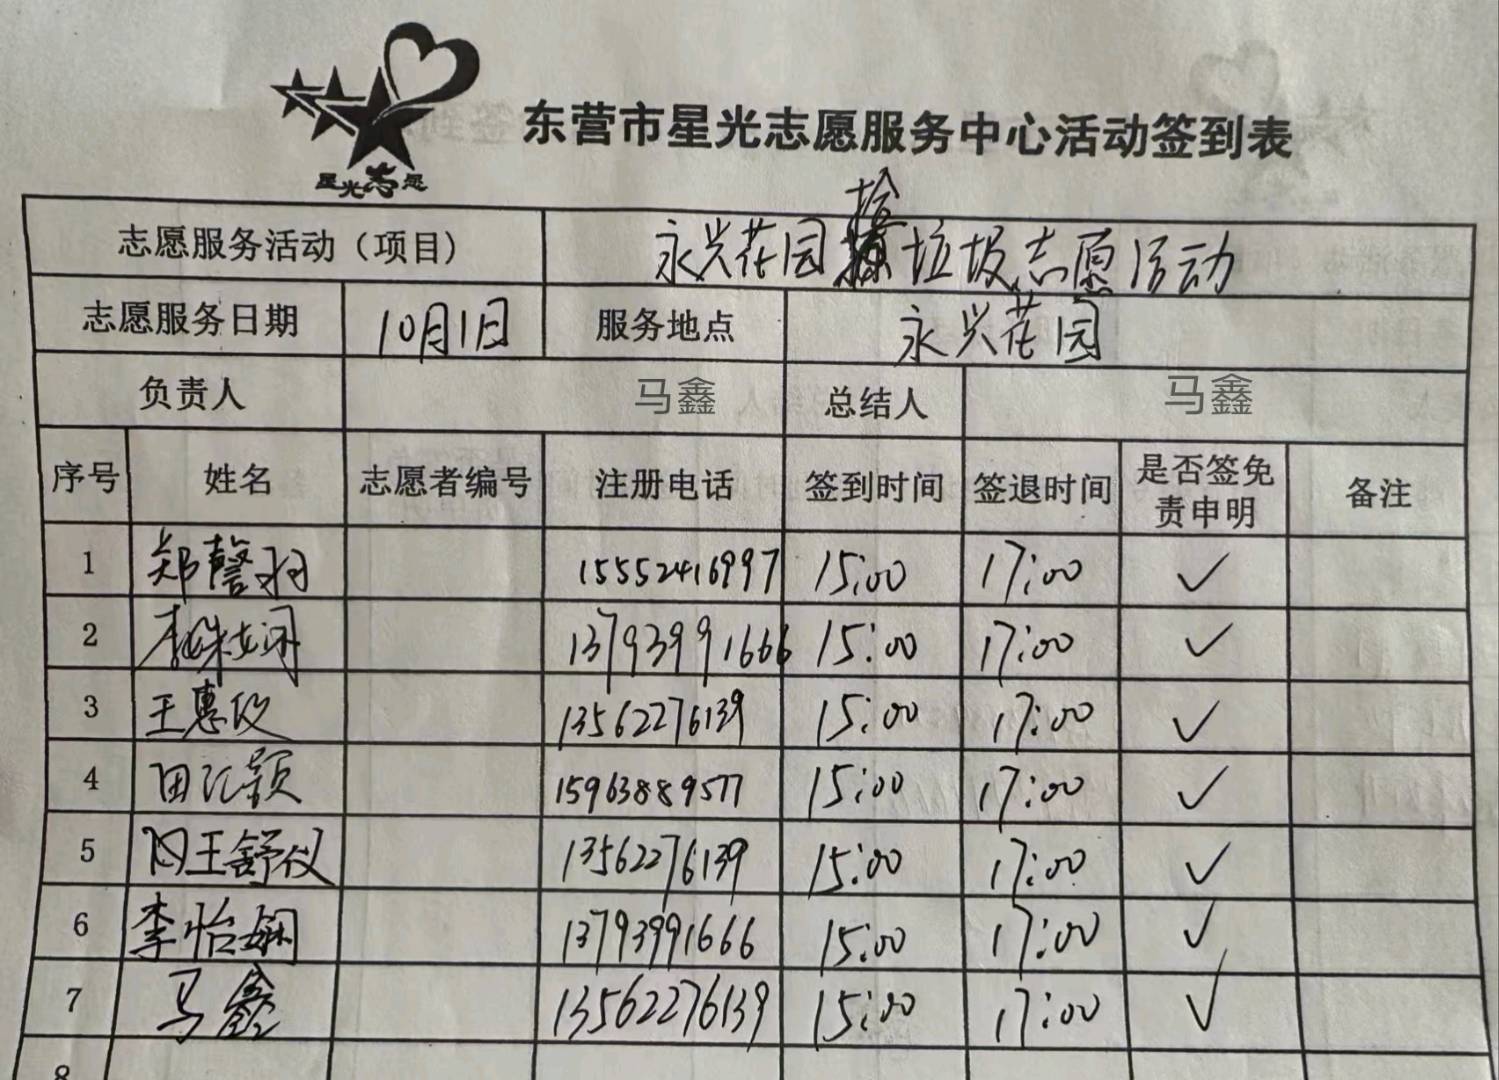 星光志愿
东营市星光志愿服务中心活动签到表
志愿服务活动（项目） 永兴花园捡垃圾志愿活动
志愿服务日期 10月1日 服务地点 永兴花园
负责人 马鑫 总结人 马鑫
序号 姓名 志愿者编号 注册电话 签到时间 签退时间 是否签免责申明 备注
1 郑馨羽 15552416997 15:00 17:00 ✓
2 李姝娴 13793991666 15:00 17:00 ✓
3 王惠玫 13562276139 15:00 17:00 ✓
4 田汇颖 15963889577 15:00 17:00 ✓
5 王舒仪 13562276139 15:00 17:00 ✓
6 李怡娴 13793991666 15:00 17:00 ✓
7 马鑫 13562276139 15:00 17:00 ✓
8